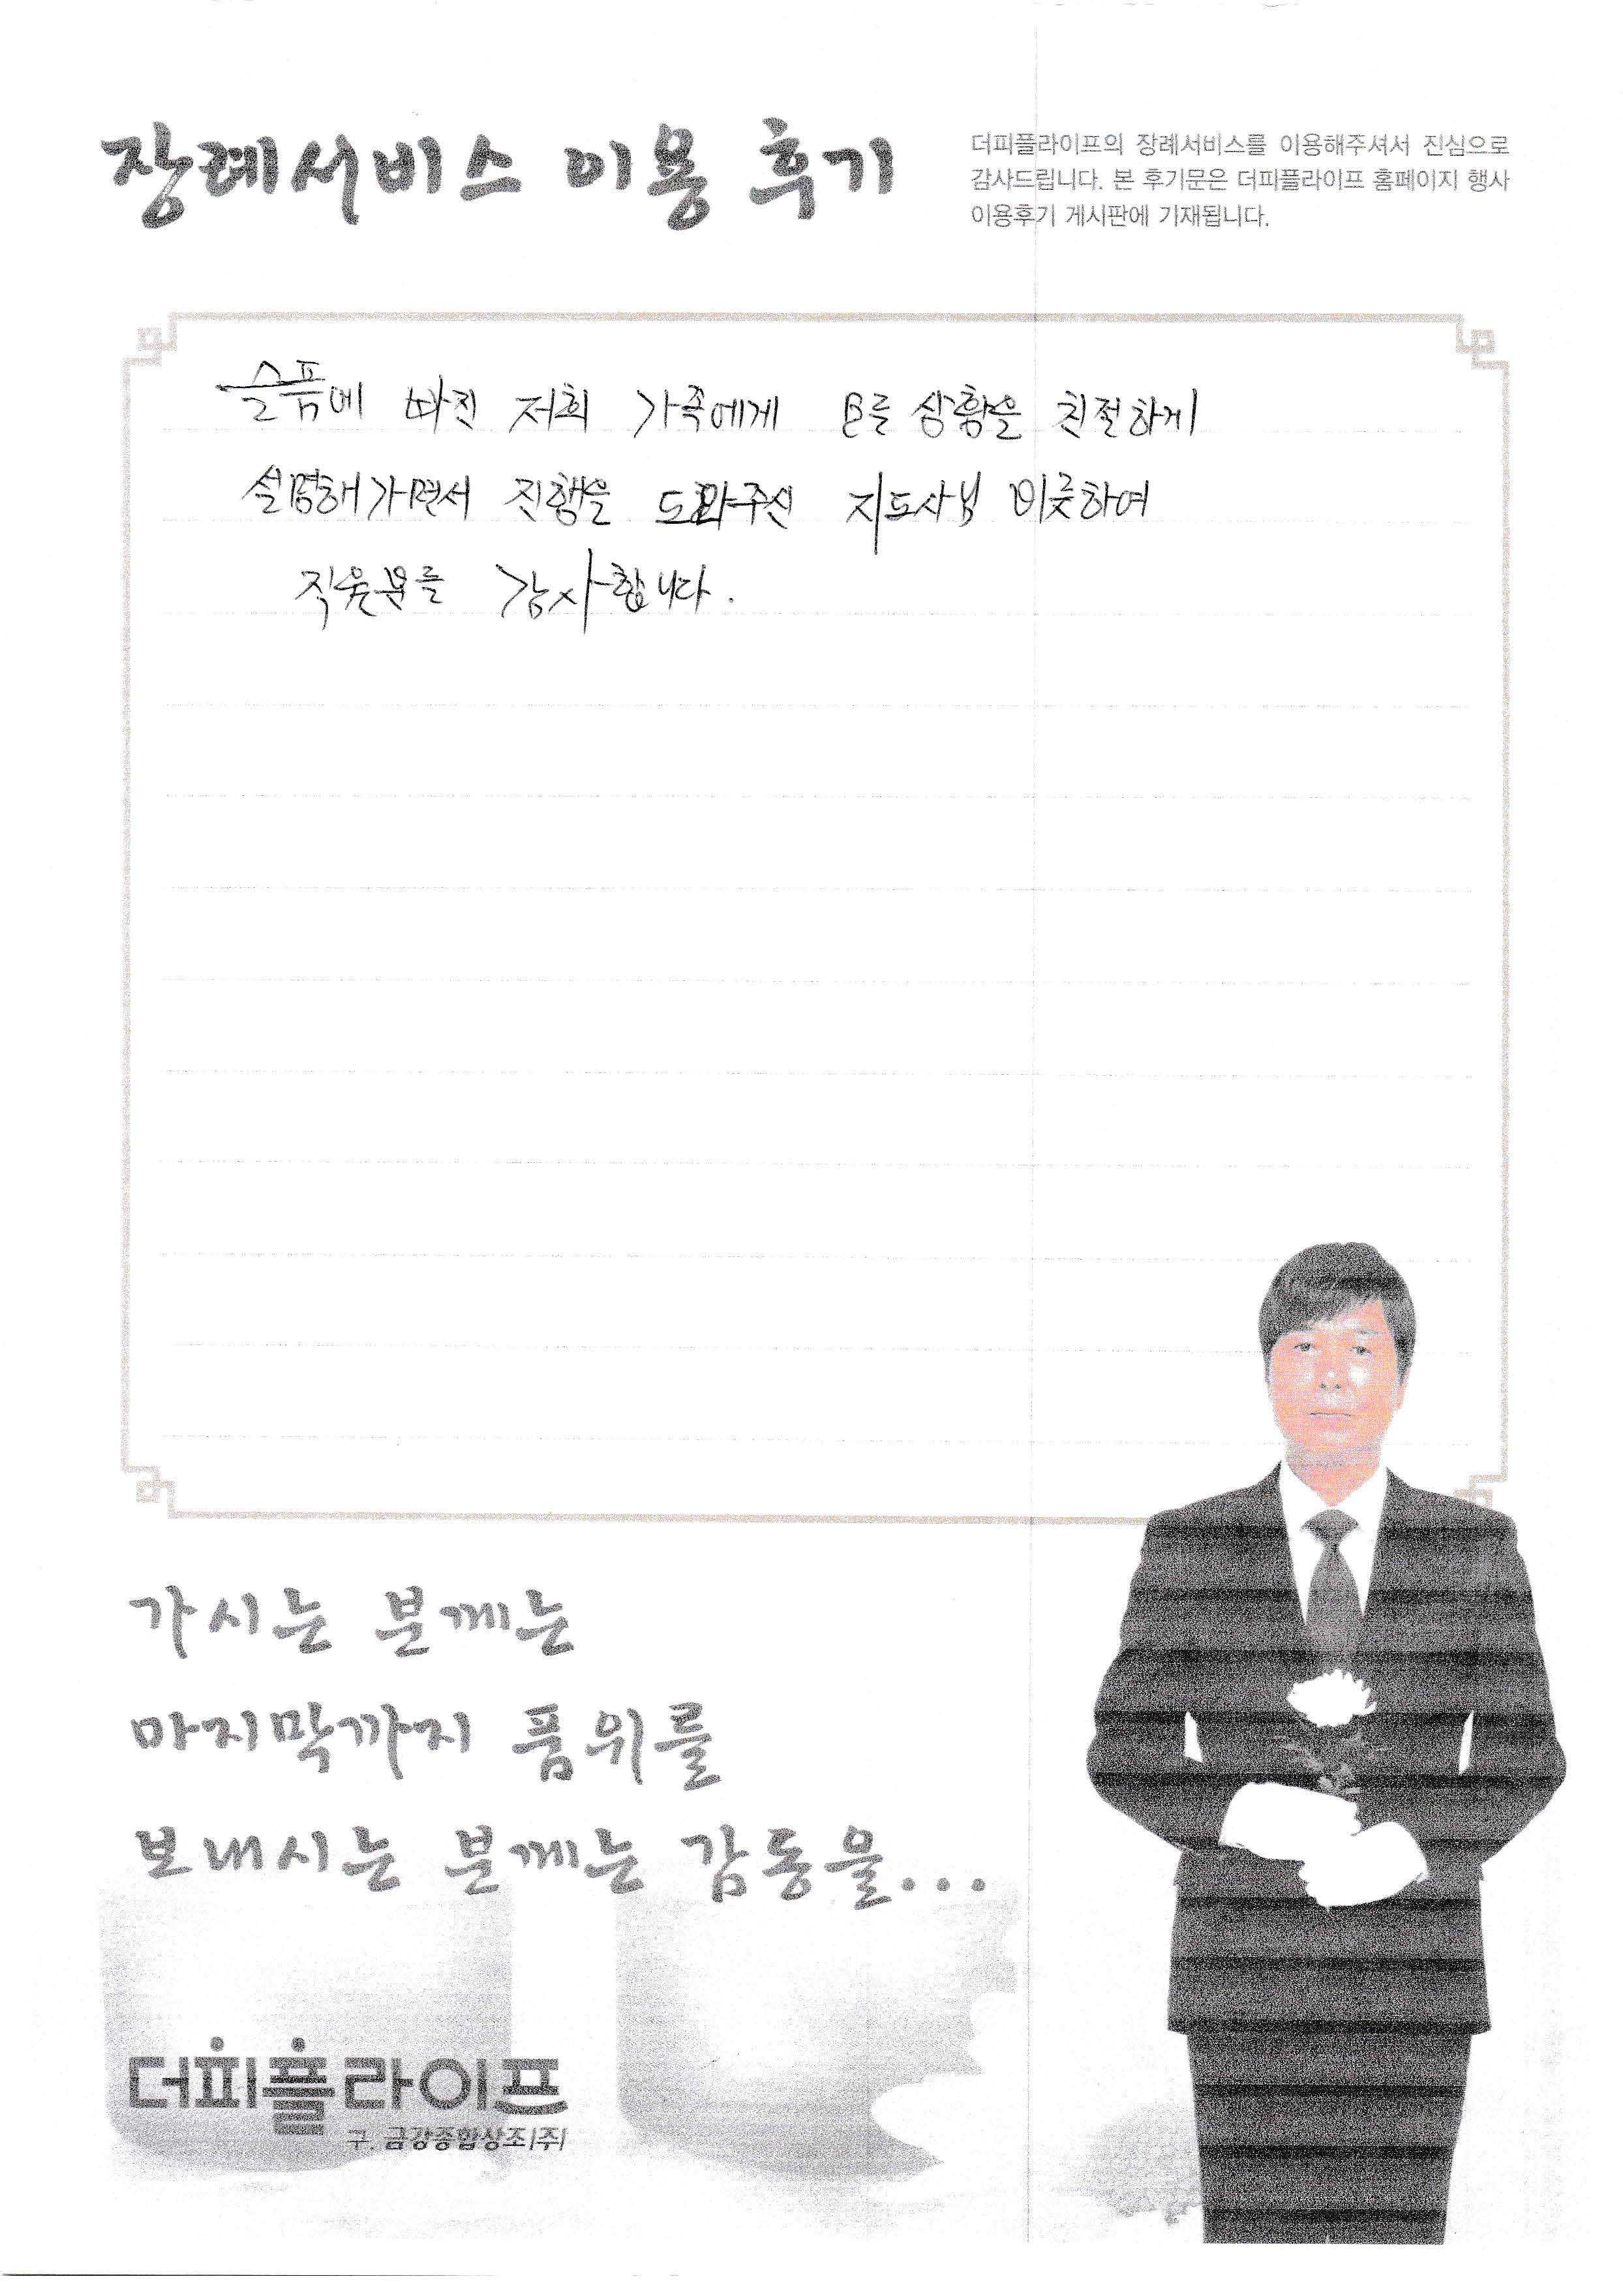 장례서비스 이용 후기
더피플라이프의 장례서비스를 이용해주셔서 진심으로
감사드립니다. 본 후기문은 더피플라이프 홈페이지 행사
이용후기 게시판에 기재됩니다.
슬픔에 빠진 저희 가족에게 모든 상황을 친절하게
설명해가면서 진행을 도와주신 지도사님 비롯하여
직원분들 감사합니다.
가시는 분께는
마지막까지 품위를
보내시는 분께는 감동을...
더피플라이프
구. 금강종합상조(주)